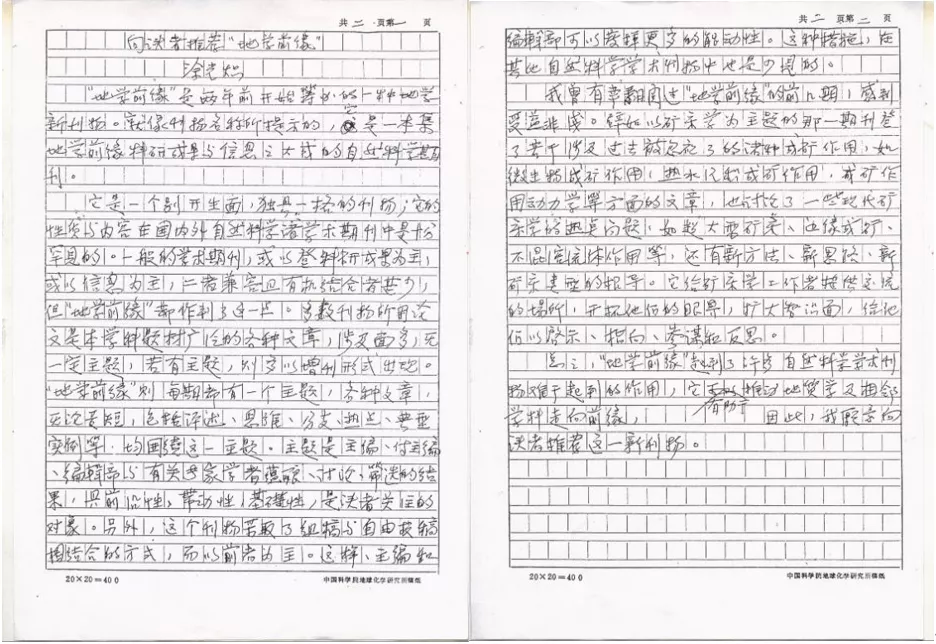 共二页第一页
向读者推荐“地学前缘”
涂光炽
“地学前缘”是两年前开始筹办的一种地学
新刊物。就像刊物名称所提示的，它是一本集
地学前缘科研成果与信息之大成的自然科学期
刊。
它是一个别开生面，独具一格的刊物；它的
性质与内容在国内外自然科学诸学术期刊中是十分
罕见的。一般的学术期刊，或以登科研成果为主，
或以信息为主，二者兼容且有机结合者甚少，
但“地学前缘”却作到了这一点。多数刊物所刊论
文是本学科题材广泛的各种文章，涉及面多，无
一定主题，若有主题，则多以增刊形式出现。
“地学前缘”则每期都有一个主题，各种文章，
无论长短，包括评述、思维、分支、热点、典型
实例等，均围绕这一主题。主题是主编、付主编
、编辑部与有关专家学者酝酿、讨论、筛选的结
果，具前沿性，带动性，基础性，是读者关注的
对象。另外，这个刊物采取了组稿与自由投稿
相结合的方式，而以前者为主。这样，主编和
20×20=400
中国科学院地球化学研究所稿纸
共二页第二页
编辑部可以发挥更多的能动性。这种措施，在
其他自然科学学术刊物中也是少见的。
我曾有幸翻阅过“地学前缘”的前几期，感到
受益非浅。例如以矿床学为主题的那一期刊登
了若干涉及过去被忽视了的诸种成矿作用，如
微生物成矿作用，热水沉积成矿作用，成矿作
用动力学等方面的文章，也讨论了一些现代矿
床学的热点问题，如超大型矿床、边缘成矿、
不混溶流体作用等，还有新方法、新思路、新
矿床类型的报导。它给矿床学工作者提供交流
的场所，开拓他们的眼界，扩大知识面，给他
们以启示、指向、参谋和反思。
总之，“地学前缘”起到了许多自然科学学术刊
物难于起到的作用，它有助于推动地质学及相邻
学科走向前缘，因此，我愿意向
读者推荐这一新刊物。
20×20=400
中国科学院地球化学研究所稿纸